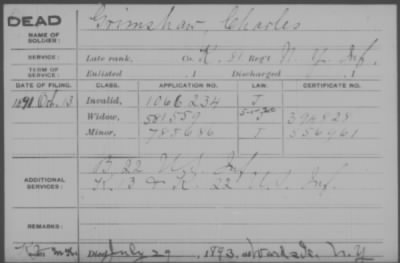 DEAD
NAME OF SOLDIER: Grimshaw, Charles
SERVICE: Late rank, Co. K. 81 Reg't N.Y. Inf.
TERM OF SERVICE: Enlisted , 1 Discharged , 1
DATE OF FILING. CLASS. APPLICATION NO. LAW. CERTIFICATE NO.
1890 Oct. 13 Invalid, 1066234 J
Widow, 581559 J 394828
Minor, 785686 J 556961
ADDITIONAL SERVICES: B. 22 U.S. Inf.
K. 13 & K. 22 U.S. Inf.
REMARKS:
Died July 29, 1893, at N.Y.